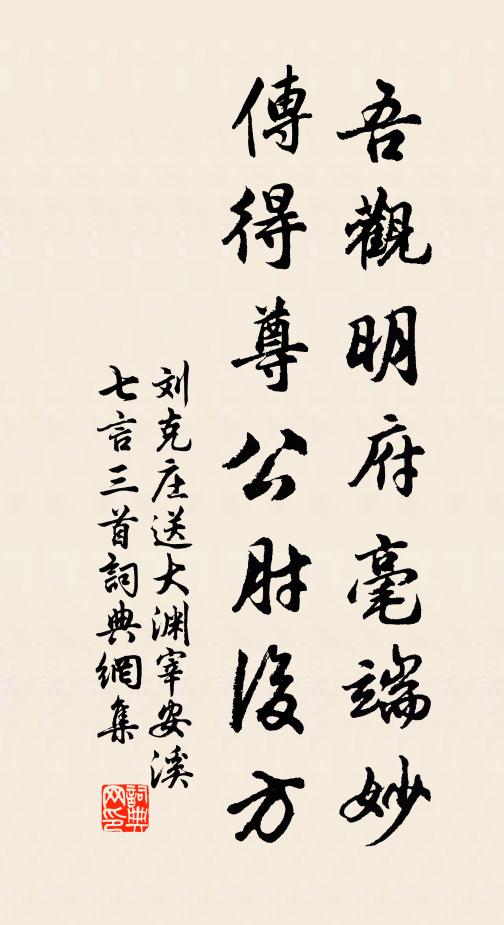 吾觀明府毫端妙
傳得尊公肘後方
刘克庄送大渊宰安溪
七言三首詞典網集
詞典
网印